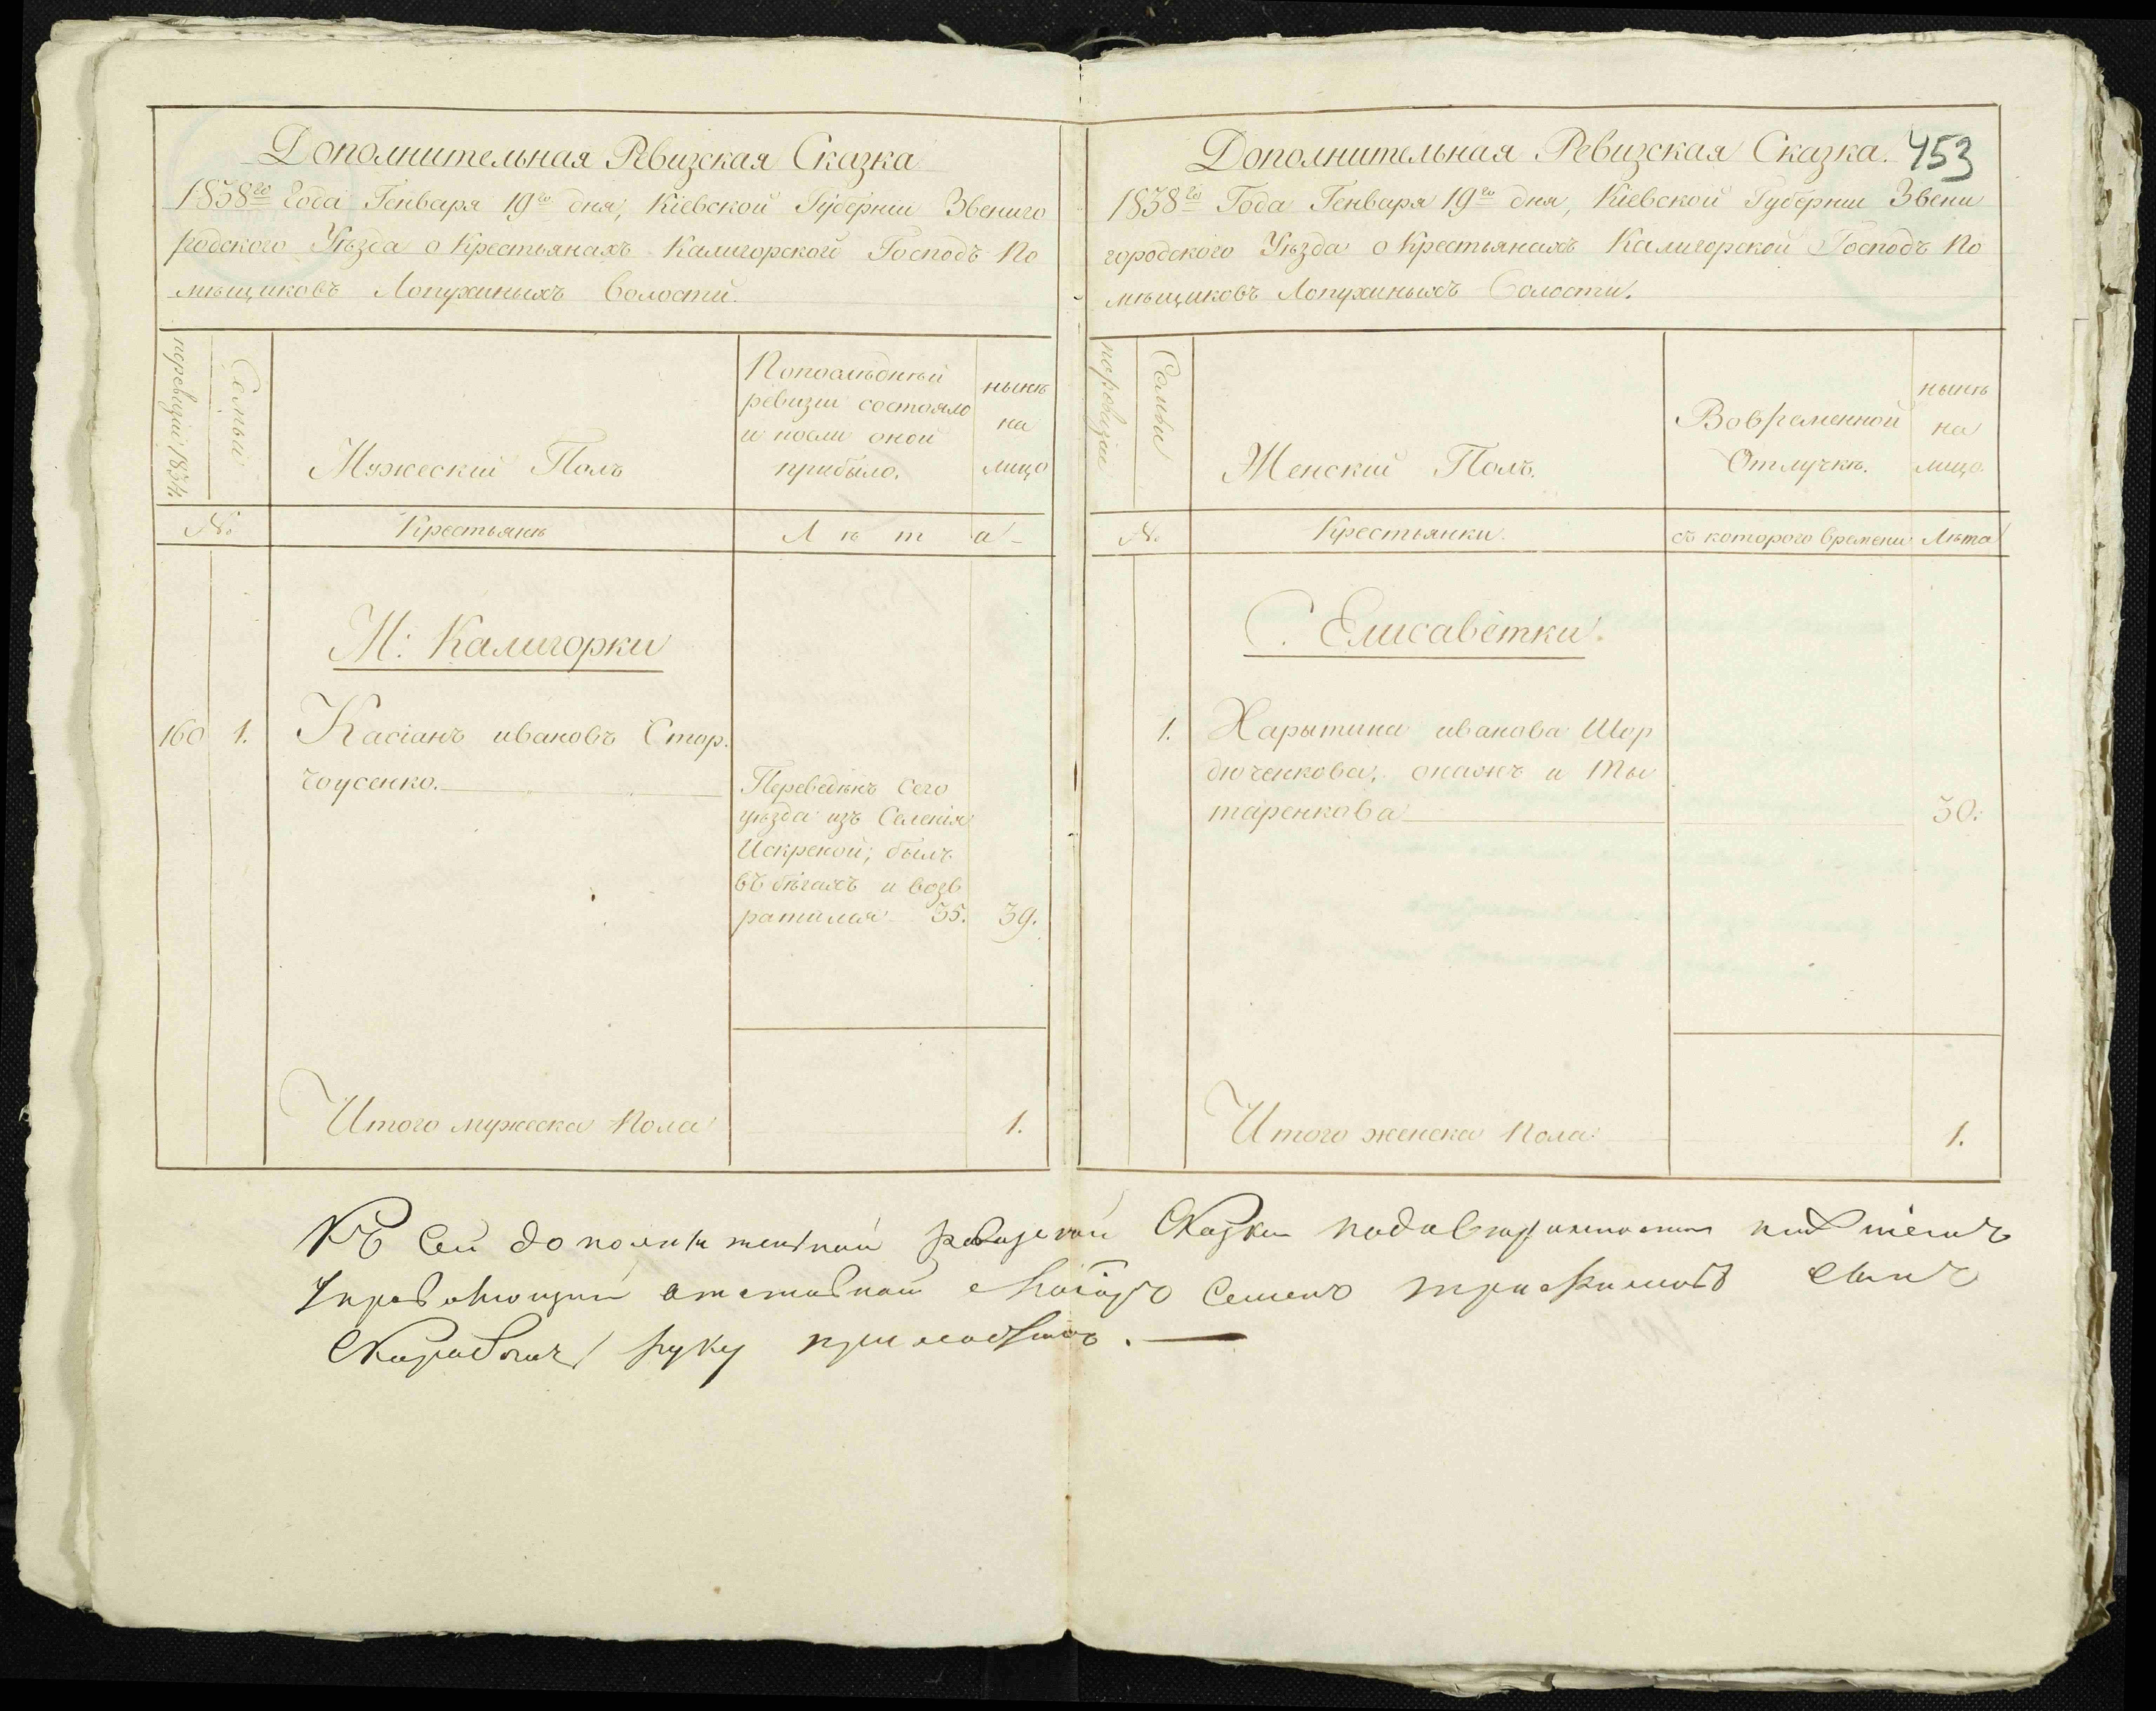 Дополнительная Ревизская Сказка
1838го Года Генваря 19го дня, Кіевской Губерніи Звениго
родского Уѣзда о Крестьянахъ Калигорской Господъ По
мѣщиковъ Лопухиныхъ волости.
поревизіи 1834.
Семьи
Мужескій Полъ
Попослѣдней
ревизіи состояло
и посли оной
прибыло.
нынѣ
на
лицо
№
Крестьянѣ
Л ѣ т а
М: Калигорки
160 1. Касіанъ ивановъ Стор.
чоусенко.
Переведѣнъ Сего
уѣзда изъ Селенія
Искреной; былъ
въ бѣгахъ и возв
ратился 35. 39.
Итого мужеска Пола 1.
Дополнительная Ревизская Сказка. 453
1838го Года Генваря 19го дня, Кіевской Губерніи Звени
городского Уѣзда о Крестьянахъ Калигорской Господъ По
мѣщиковъ Лопухиныхъ Волости.
поревизіи
Семьи
Женскій Полъ.
Вовременной
Отлучкѣ.
нынѣ
на
лицо.
№
Крестьянки.
съ которого времени
Лѣта
С. Елисаветки.
1. Харытина иванова Шор
дюченкова, онажъ и Ты
таренкова 30.
Итого женска Пола 1.
Къ Сей дополнительной ревизской Сказки
Управляющій отставной Семенъ сынъ
руку приложилъ.